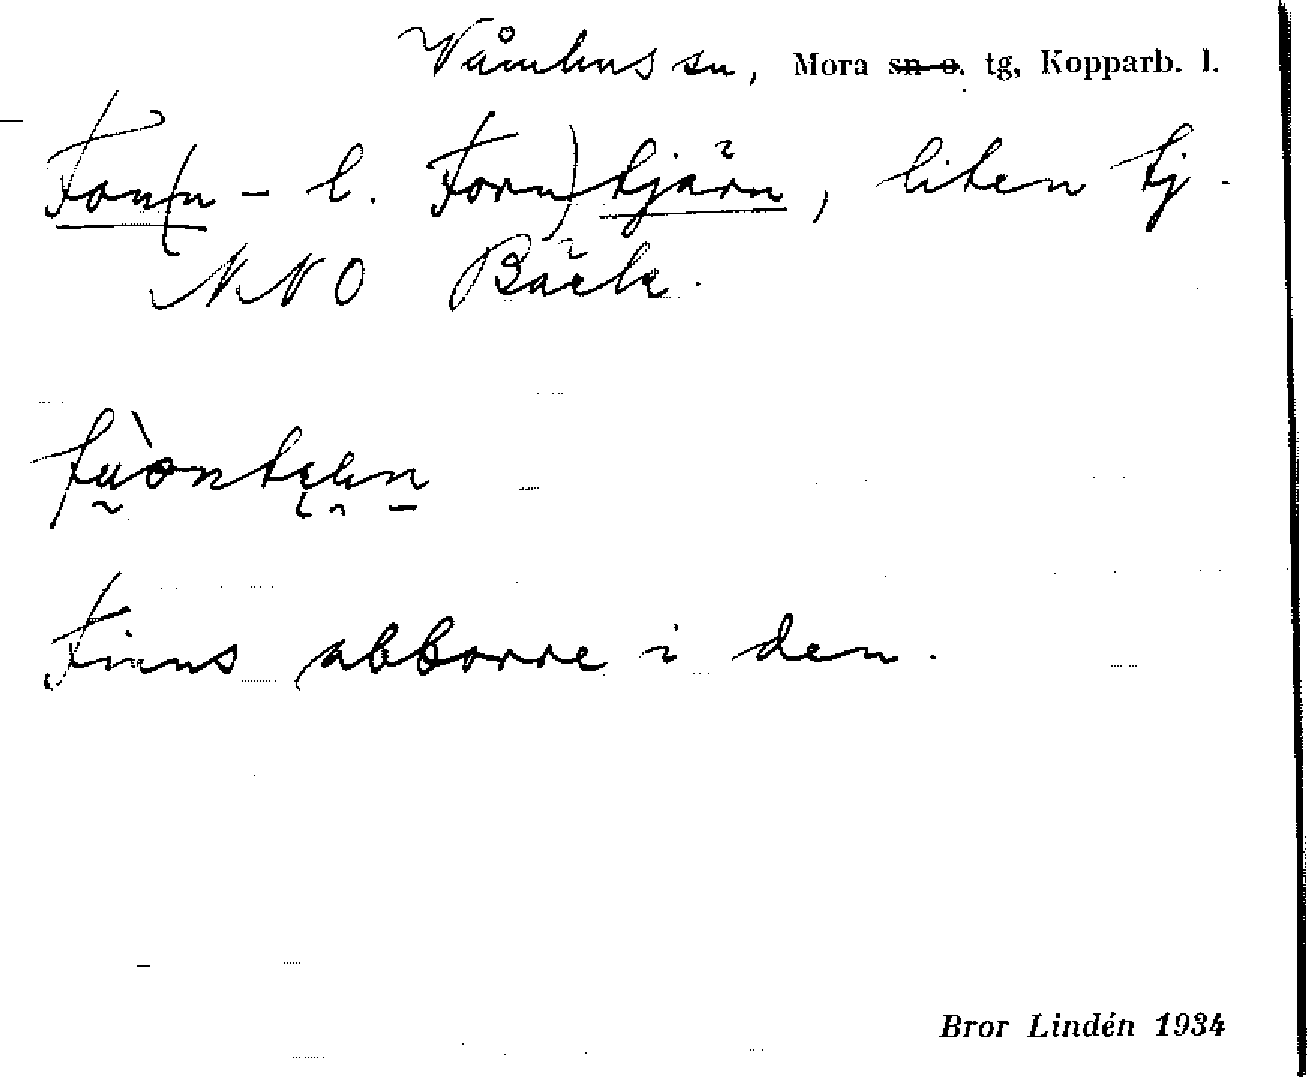 Våmhus sn, Mora sn o. tg, Kopparb. l.
Fon(n- l. Forn)tjärn, liten tj.
NNO Bäck.
Finns abborre i den.
Bror Lindén 1934